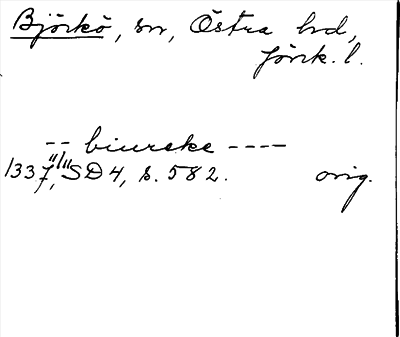 Björkö, sn, Östra hrd,
Jönk. l.
-- biureke ----
1337 11/11, SD 4, s. 582. orig.